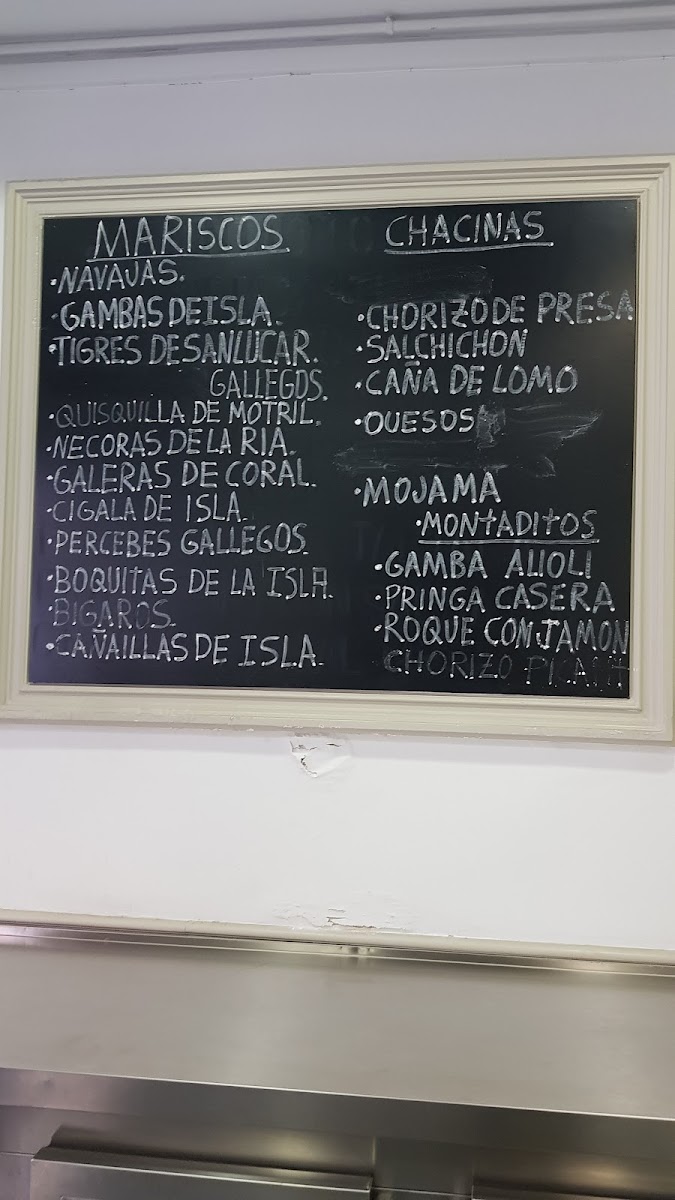 MARISCOS
·NAVAJAS.
·GAMBAS DE ISLA.
·TIGRES DE SANLUCAR.
GALLEGOS.
·QUISQUILLA DE MOTRIL.
·NECORAS DE LA RIA.
·GALERAS DE CORAL.
·CIGALA DE ISLA.
·PERCEBES GALLEGOS
·BOQUITAS DE LA ISLA.
·BIGAROS.
·CAÑAILLAS DE ISLA.
CHACINAS
·CHORIZO DE PRESA
·SALCHICHON
·CAÑA DE LOMO
·QUESOS
·MOJAMA
·MONTADITOS
·GAMBA ALIOLI
·PRINGA CASERA
·ROQUE CON JAMON
CHORIZO